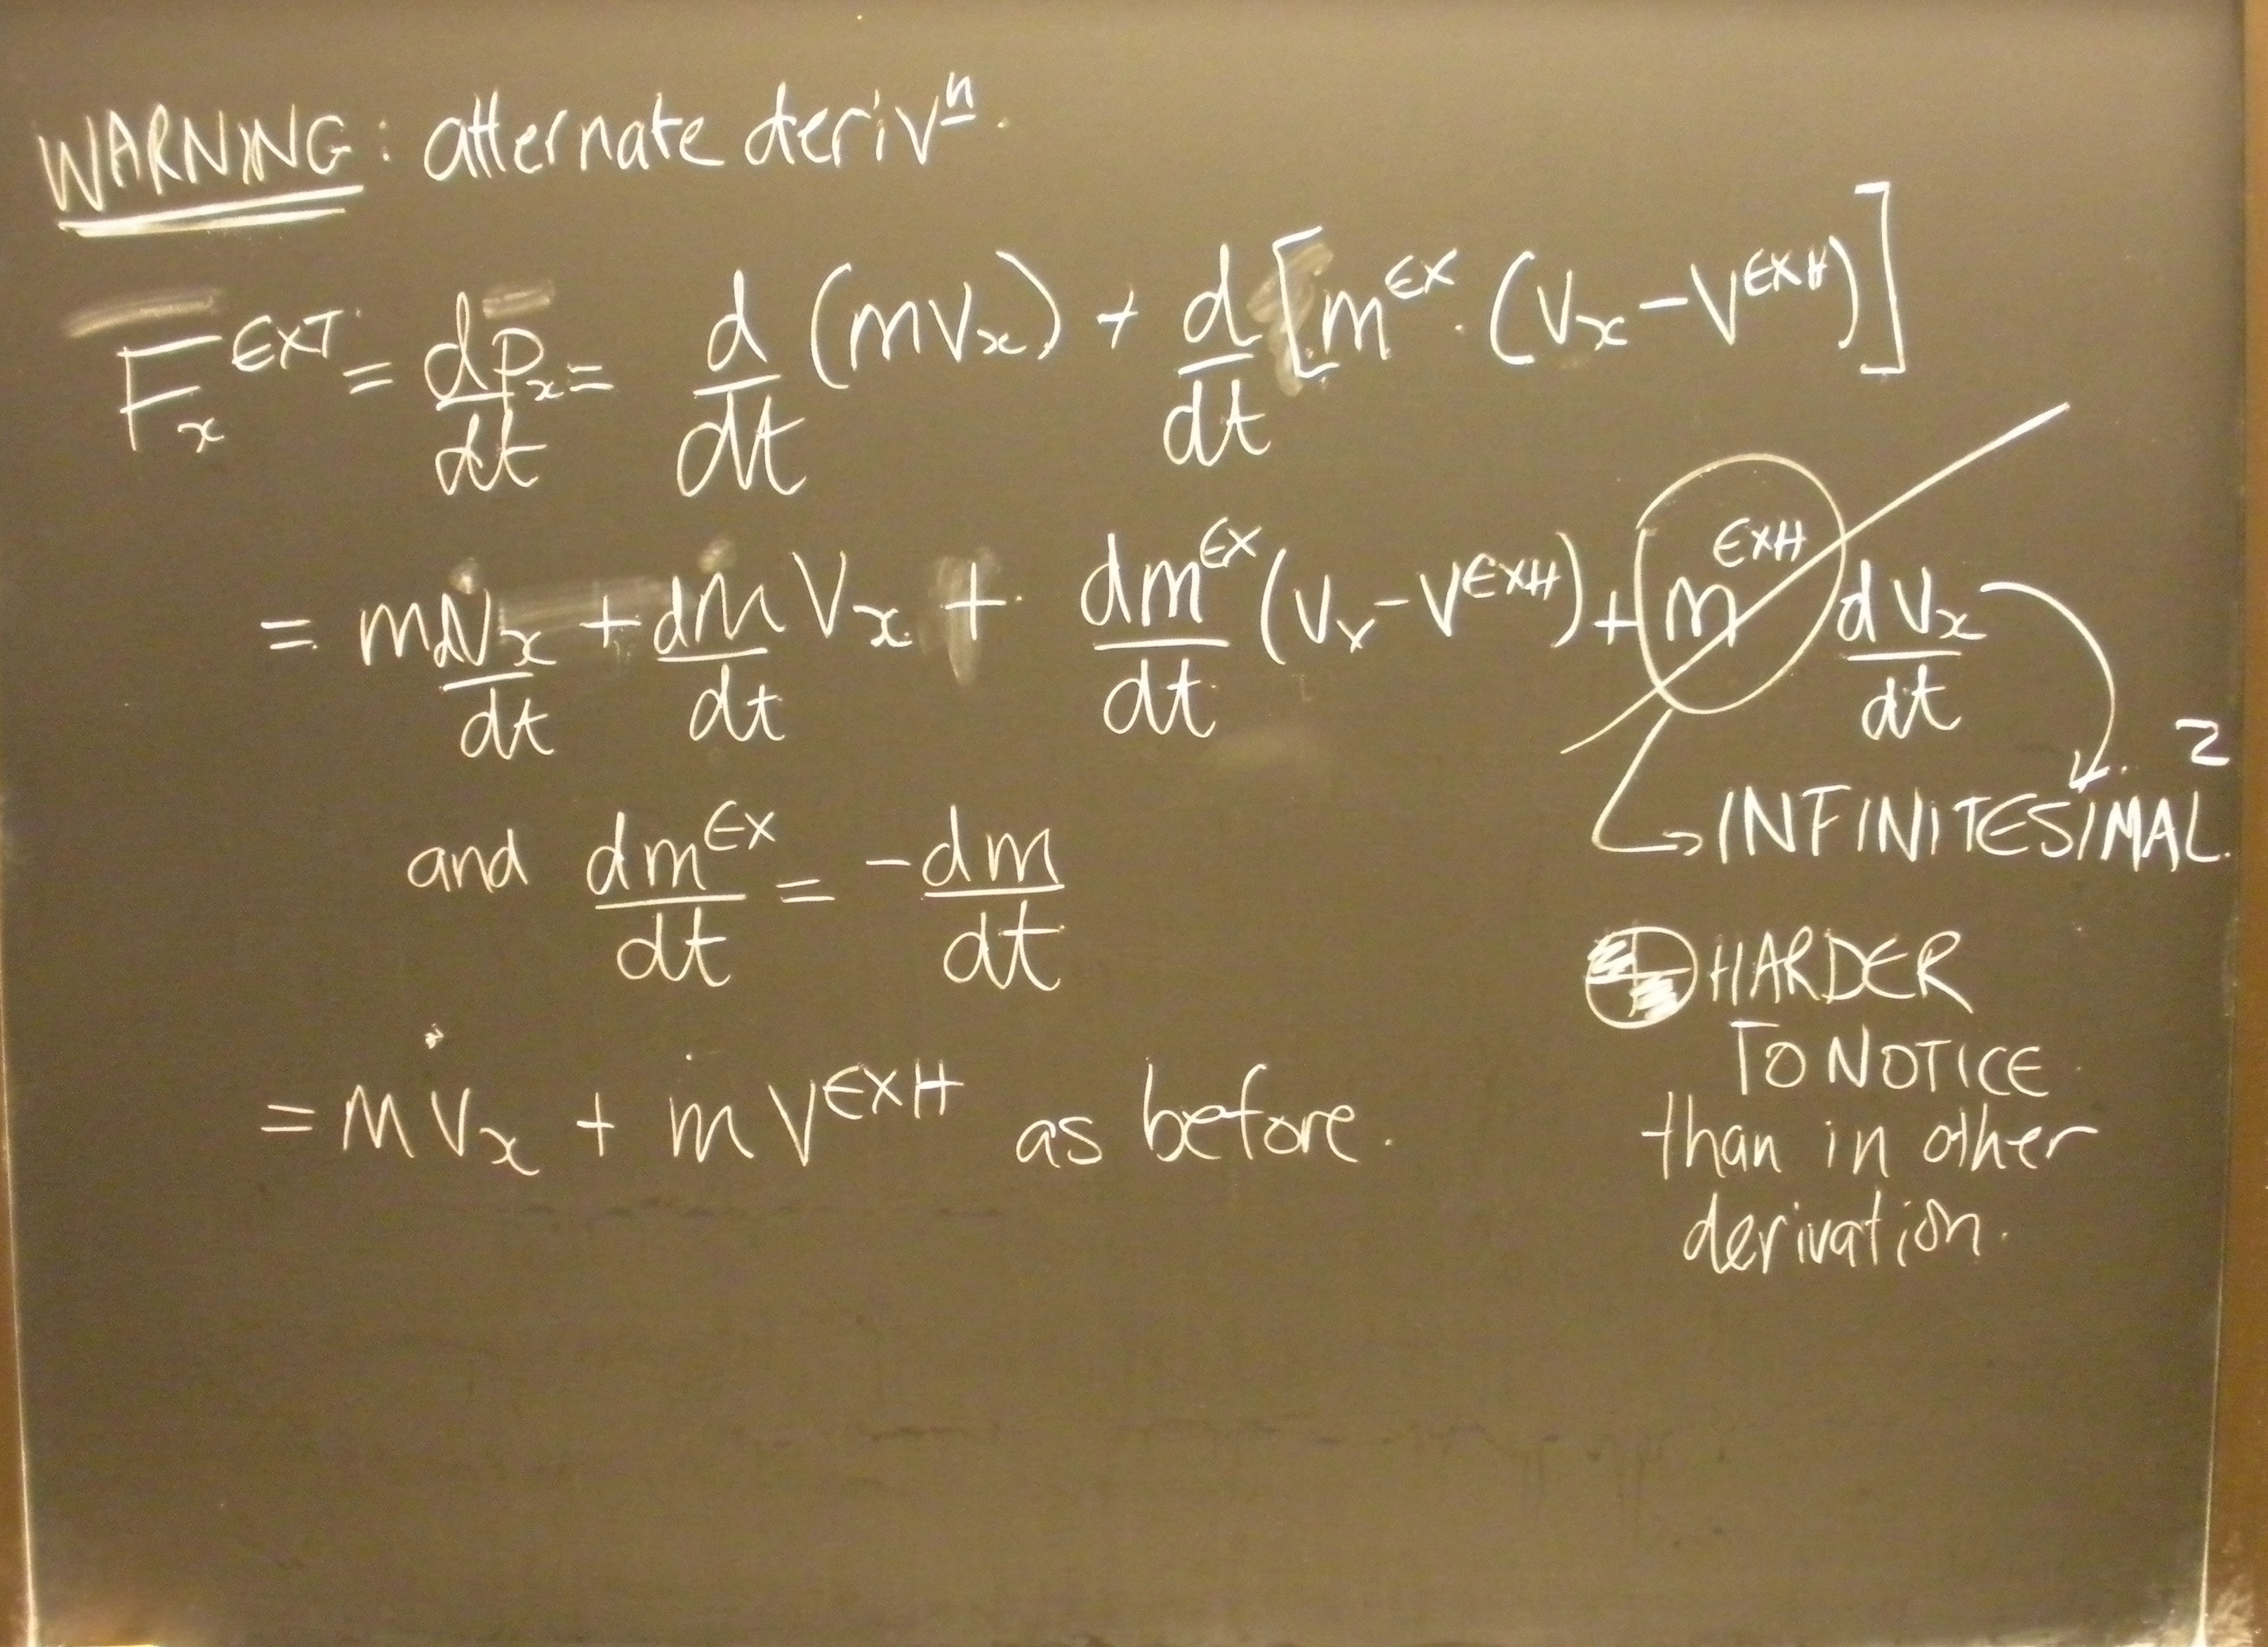 WARNING: alternate derivⁿ.
Fₓ^EXT = dpₓ/dt = d/dt (mvₓ) + d/dt [m^EX. (vₓ - v^EXH)]
= m dvₓ/dt + dm/dt vₓ + dm^EX/dt (vₓ - v^EXH) + m^EXH dvₓ/dt
↳ INFINITESIMAL. 2
and dm^EX/dt = -dm/dt
HARDER
TO NOTICE
than in other
derivation.
= m v̇ₓ + ṁ v^EXH as before.